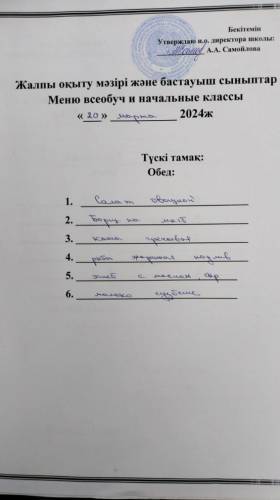 Бекітемін
Утверждаю и.о. директора школы:
А.А. Самойлова
Жалпы оқыту мәзірі және бастауыш сыныптар
Меню всеобуч и начальные классы
« 20 » марта 2024ж
Түскі тамақ:
Обед:
1. Салат овощной
2. Борщ на
3. каша гречневая
4. рыба жареная
5. хлеб с маслом, сыр
6. молоко